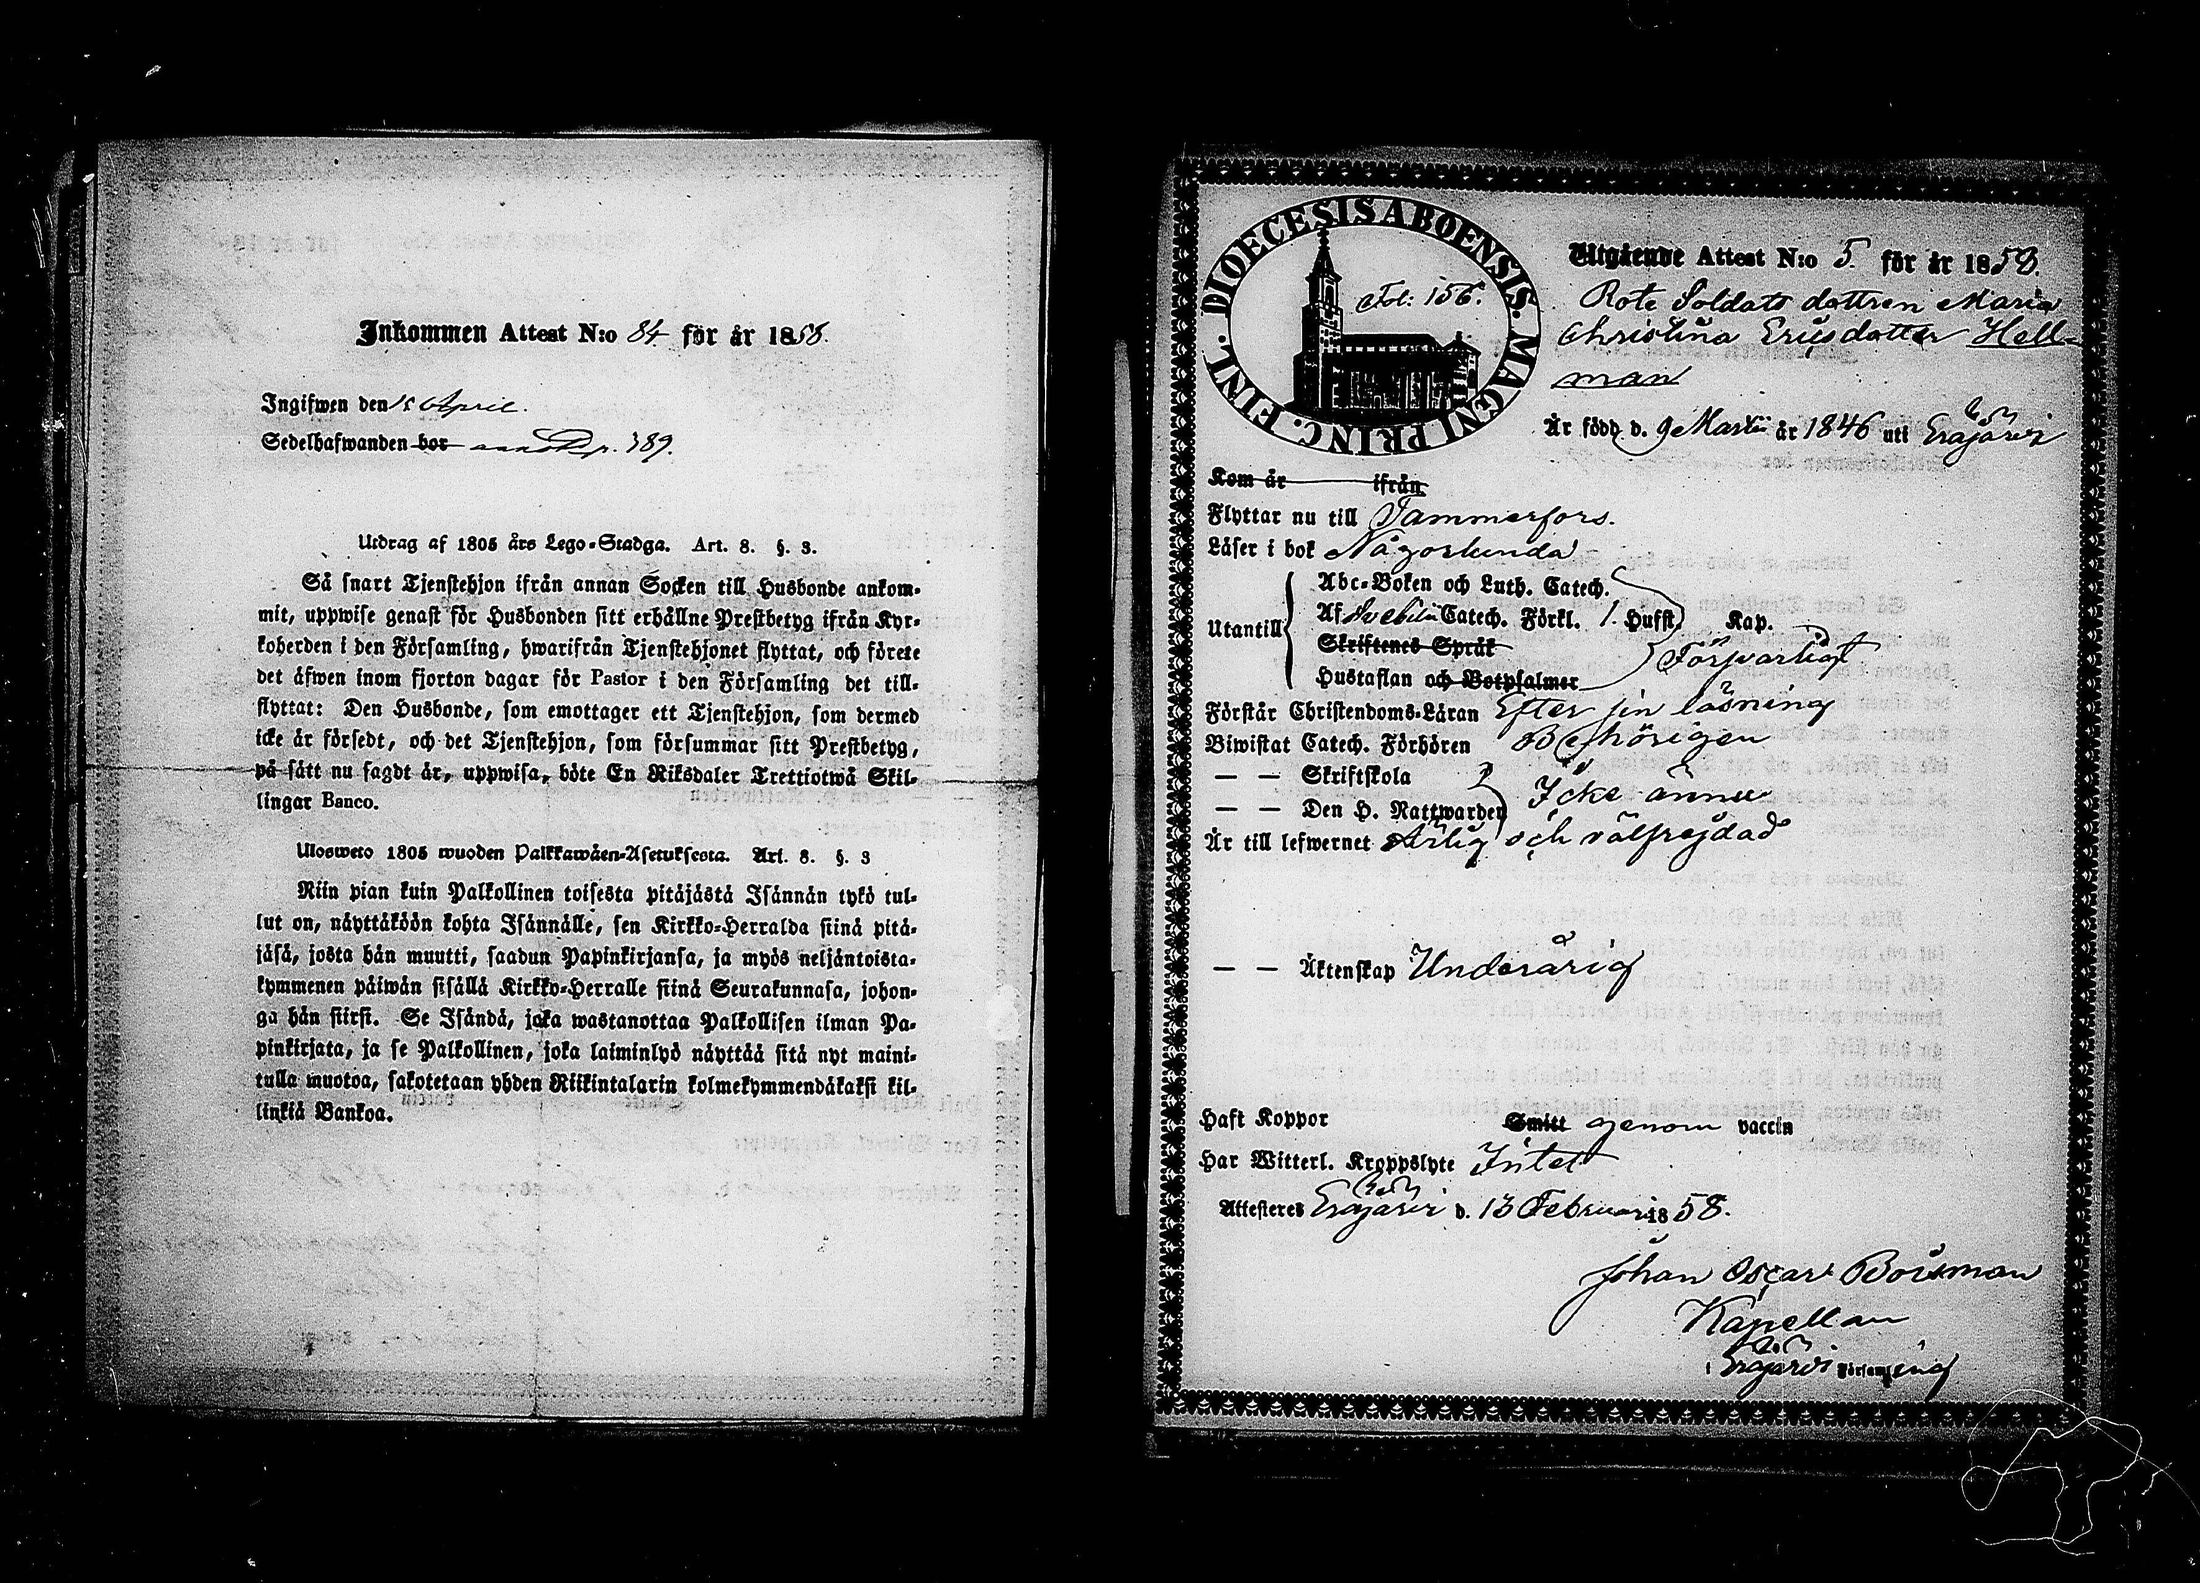 Inkommen Attest N:o 84 för år 1858.
Ingifwen den 15 April.
Sedelhafwanden bor p. 389.
Utdrag af 1805 års Lego-Stadga. Art. 8. §. 3.
Så snart Tjenstehjon ifrån annan Socken till Husbonde ankom-
mit, uppwise genast för Husbonden sitt erhållne Prestbetyg ifrån Kyr-
koherden i den Församling, hwarifrån Tjenstehjonet flyttat, och förete
det äfwen inom fjorton dagar för Pastor i den Församling det till-
flyttat: Den Husbonde, som emottager ett Tjenstehjon, som dermed
icke är försedt, och det Tjenstehjon, som försummar sitt Prestbetyg,
på sätt nu sagdt är, uppwisa, böte En Riksdaler Trettiotwå Skil-
lingar Banco.
Ulosweto 1805 wuoden Palkkawäen-Asetuksesta. Art. 8. §. 3
Niin pian kuin Palkollinen toisesta pitäjästä Isännän tykö tul-
lut on, näyttäköön kohta Isännälle, sen Kirkko-Herralda siinä pitä-
jäsä, josta hän muutti, saadun Papinkirjansa, ja myös neljäntoista-
kymmenen päiwän sisällä Kirkko-Herralle siinä Seurakunnasa, johon-
ga hän siirsi. Se Isändä, joka wastanottaa Palkollisen ilman Pa-
pinkirjata, ja se Palkollinen, joka laiminlyö näyttää sitä nyt maini-
tulla muotoa, sakotetaan yhden Riikintalarin kolmekymmendäkaksi kil-
linkiä Bankoa.
DIOECESIS ABOENSIS. MAGNI PRINC. FINL.
Fol: 156.
Utgående Attest N:o 5. för år 1858.
Rote Soldats dottren Maria
Christina Ericsdotter Hell-
man
Är född d. 9 Martii år 1846 uti Erajärvi
Kom år ifrån
Flyttar nu till Tammerfors.
Läser i bok Någorlunda
Utantill
Abc-Boken och Luth. Catech.
Af Svebilii Catech. Förkl. 1. Hufst. Kap.
Skriftenes Språk
Försvarligt
Hustaflan och Botpsalmer
Förstår Christendoms-Läran Efter sin läsning
Biwistat Catech. Förhören Behörigen
— — Skriftskola
— — Den H. Nattwarden Icke ännu
Är till lefwernet Ärlig och välfrejdad
— — Äktenskap Underårig
Haft Koppor Smitt genom vaccin
Har Witterl. Kroppslyte Intet
Attesteres Erajärvi d. 13 Februari 1858.
Johan Oscar Boisman
Kapellan
i Erajärvi Församling